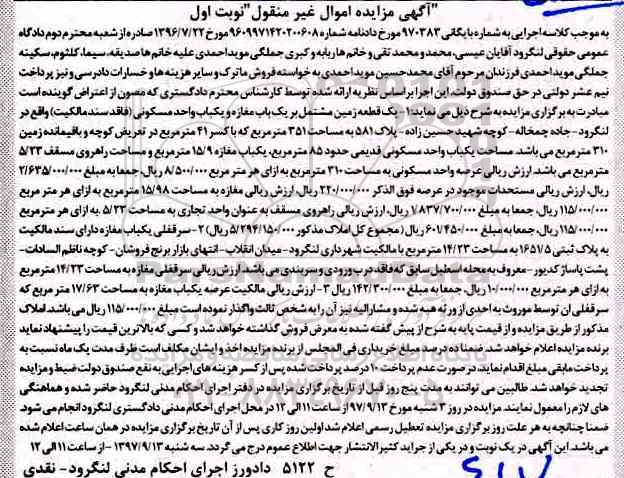 "آگهی مزایده اموال غیر منقول" نوبت اول
به موجب کلاسه اجرایی به شماره بایگانی ۹۷۰۳۸۳ مورخ دادنامه شماره ۹۶۰۹۹۷۱۴۲۰۲۰۰۶۰۸ مورخ ۱۳۹۶/۷/۲۲ صادره از شعبه محترم دوم دادگاه
عمومی حقوقی لنگرود آقایان عیسی، محمد و محمد تقی و خانم ها ربابه و کبری جملگی موید احمدی علیه خانم ها صدیقه، سیما، کلثوم، سکینه
جملگی موید احمدی فرزندان مرحوم آقای محمدحسین موید احمدی به خواسته فروش ماترک و سایر هزینه ها و خسارات دادرسی و نیز پرداخت
نیم عشر دولتی در حق صندوق دولت، این اجرا بر اساس نظریه ارائه شده توسط کارشناس محترم دادگستری که مصون از اعتراض گویده است
مبادرت به برگزاری مزایده به شرح ذیل می نماید: ۱- یک قطعه زمین مشتمل بر یک باب مغازه و یکباب واحد مسکونی (فاقد سند مالکیت) واقع در
لنگرود - جاده چمخاله - کوچه شهید حسین زاده - پلاک ۵۸۱ به مساحت ۳۵۱ مترمربع که با کسر ۴۱ مترمربع در تعریض کوچه و باقیمانده زمین
۳۱۰ مترمربع می باشد. مساحت یکباب واحد مسکونی قدیمی حدود ۸۵ مترمربع، یکباب مغازه ۱۵/۹ مترمربع و مساحت راهروی مسقف ۵/۲۳
مترمربع می باشد. ارزش ریالی عرصه واحد مسکونی به مساحت ۳۱۰ مترمربع به ازای هر متر مربع ۸/۵۰۰/۰۰۰ ریال، جمعا به مبلغ ۲/۶۳۵/۰۰۰/۰۰۰
ریال، ارزش ریالی مستحدثات موجود در عرصه فوق الذکر ۲۲۰/۰۰۰/۰۰۰ ریال، ارزش ریالی مغازه به مساحت ۱۵/۹۸ مترمربع به ازای هر متر مربع
۱۱۵/۰۰۰/۰۰۰ ریال، جمعا به مبلغ ۱/۸۳۷/۷۰۰/۰۰۰ ریال، ارزش ریالی راهروی مسقف به عنوان واحد تجاری به مساحت ۵/۲۳، به ازای هر مترمربع
۱۱۵/۰۰۰/۰۰۰ ریال، جمعا به مبلغ ۶۰۱/۴۵۰/۰۰۰ ریال (مجموع کل املاک مذکور ۵/۲۹۴/۱۵۰/۰۰۰ ریال) ۲- سرقفلی یکباب مغازه دارای سند مالکیت
به پلاک ثبتی ۱۶۵۱/۵ به مساحت ۱۴/۲۳ مترمربع با مالکیت شهرداری لنگرود - میدان انقلاب - انتهای بازار برنج فروشان - کوچه ناظم السادات -
پشت پاساژ کدیور - معروف به محله سلسبیل سابق که فاقد درب ورودی و سربندی می باشد. ارزش ریالی سرقفلی مغازه به مساحت ۱۴/۲۳ مترمربع
به ازای هر مترمربع ۱۰/۰۰۰/۰۰۰ ریال، جمعا به مبلغ ۱۴۲/۳۰۰/۰۰۰ ریال ۳- ارزش ریالی مالکیت عرصه یکباب مغازه به مساحت ۱۷/۶۳ متر که
سرقفلی ان توسط موروث به احدی از ورثه هبه شده و مشارالیه نیز آن را به شخص ثالث واگذار نموده است مبلغ ۱۱۵/۰۰۰/۰۰۰ ریال می باشد. املاک
مذکور از طریق مزایده و از قیمت پایه به شرح از پیش گفته شده به معرض فروش گذاشته خواهد شد و کسی که بالاترین قیمت را پیشنهاد نماید
برنده مزایده اعلام خواهد شد. ضمنا ده درصد مبلغ خریداری فی المجلس از برنده مزایده اخذ و ایشان مکلف است ظرف مدت یک ماه نسبت به
پرداخت مابقی مبلغ اقدام نماید، در صورت عدم پرداخت ۱۰ درصد پرداخت شده پس از کسر هزینه های اجرایی به نفع صندوق دولت ضبط و مزایده
تجدید خواهد شد. طالبین می توانند به مدت پنج روز قبل از تاریخ برگزاری مزایده در دفتر اجرای احکام مدنی لنگرود حاضر شده و هماهنگی
های لازم را معمول نمایند. مزایده در روز ۳ شنبه مورخ ۹۷/۹/۱۳ از ساعت ۱۱ الی ۱۲ در محل اجرای احکام مدنی دادگستری لنگرود انجام می شود.
ضمنا چنانچه به هر علت روز برگزاری مزایده تعطیل رسمی اعلام شد اولین روز کاری پس از آن تاریخ برگزاری مزایده در همان ساعت اعلام شده
می باشد. این آگهی در یک نوبت و در یکی از جراید کثیرالانتشار جهت اطلاع عموم درج می گردد. سه شنبه ۱۳۹۷/۹/۱۳ - از ساعت ۱۱ الی ۱۲
ح ۵۱۲۲ دادورز اجرای احکام مدنی لنگرود - نقدی